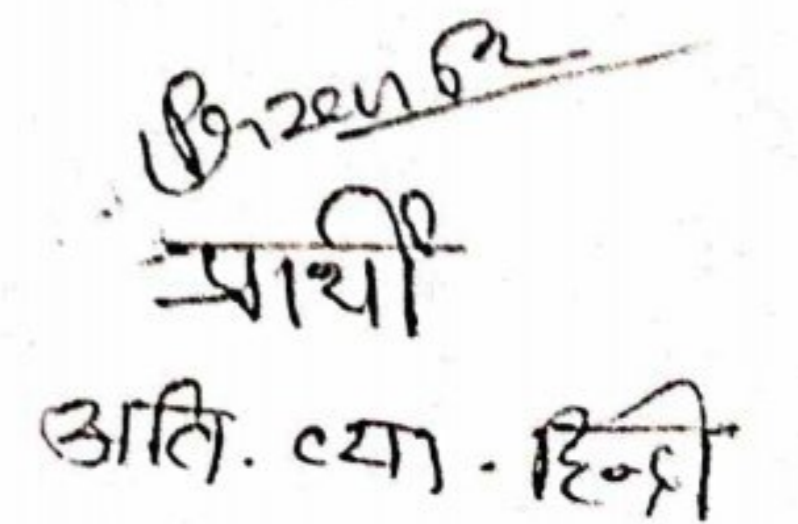 प्रार्थी
अति. व्या. हिन्दी